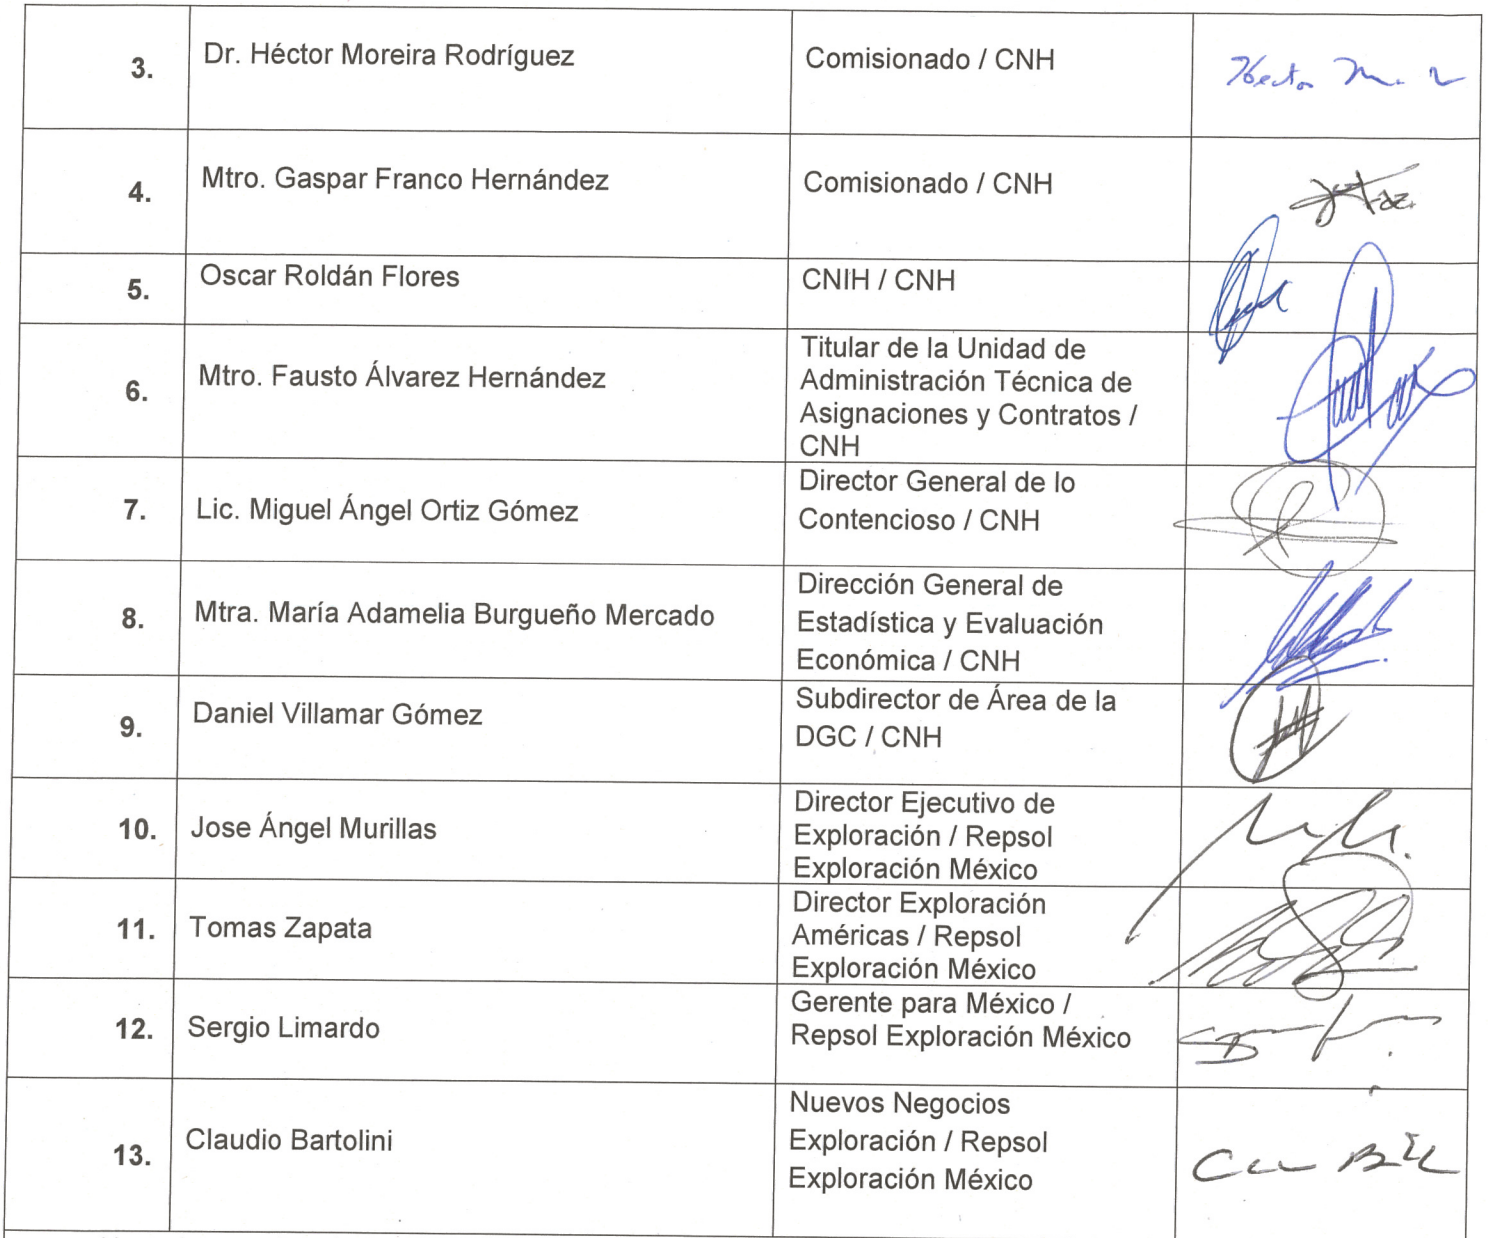 3.
Dr. Héctor Moreira Rodríguez
Comisionado / CNH
Hector M.
4.
Mtro. Gaspar Franco Hernández
Comisionado / CNH
5.
Oscar Roldán Flores
CNIH / CNH
6.
Mtro. Fausto Álvarez Hernández
Titular de la Unidad de
Administración Técnica de
Asignaciones y Contratos /
CNH
7.
Lic. Miguel Ángel Ortiz Gómez
Director General de lo
Contencioso / CNH
8.
Mtra. María Adamelia Burgueño Mercado
Dirección General de
Estadística y Evaluación
Económica / CNH
9.
Daniel Villamar Gómez
Subdirector de Área de la
DGC / CNH
10.
Jose Ángel Murillas
Director Ejecutivo de
Exploración / Repsol
Exploración México
11.
Tomas Zapata
Director Exploración
Américas / Repsol
Exploración México
12.
Sergio Limardo
Gerente para México /
Repsol Exploración México
13.
Claudio Bartolini
Nuevos Negocios
Exploración / Repsol
Exploración México